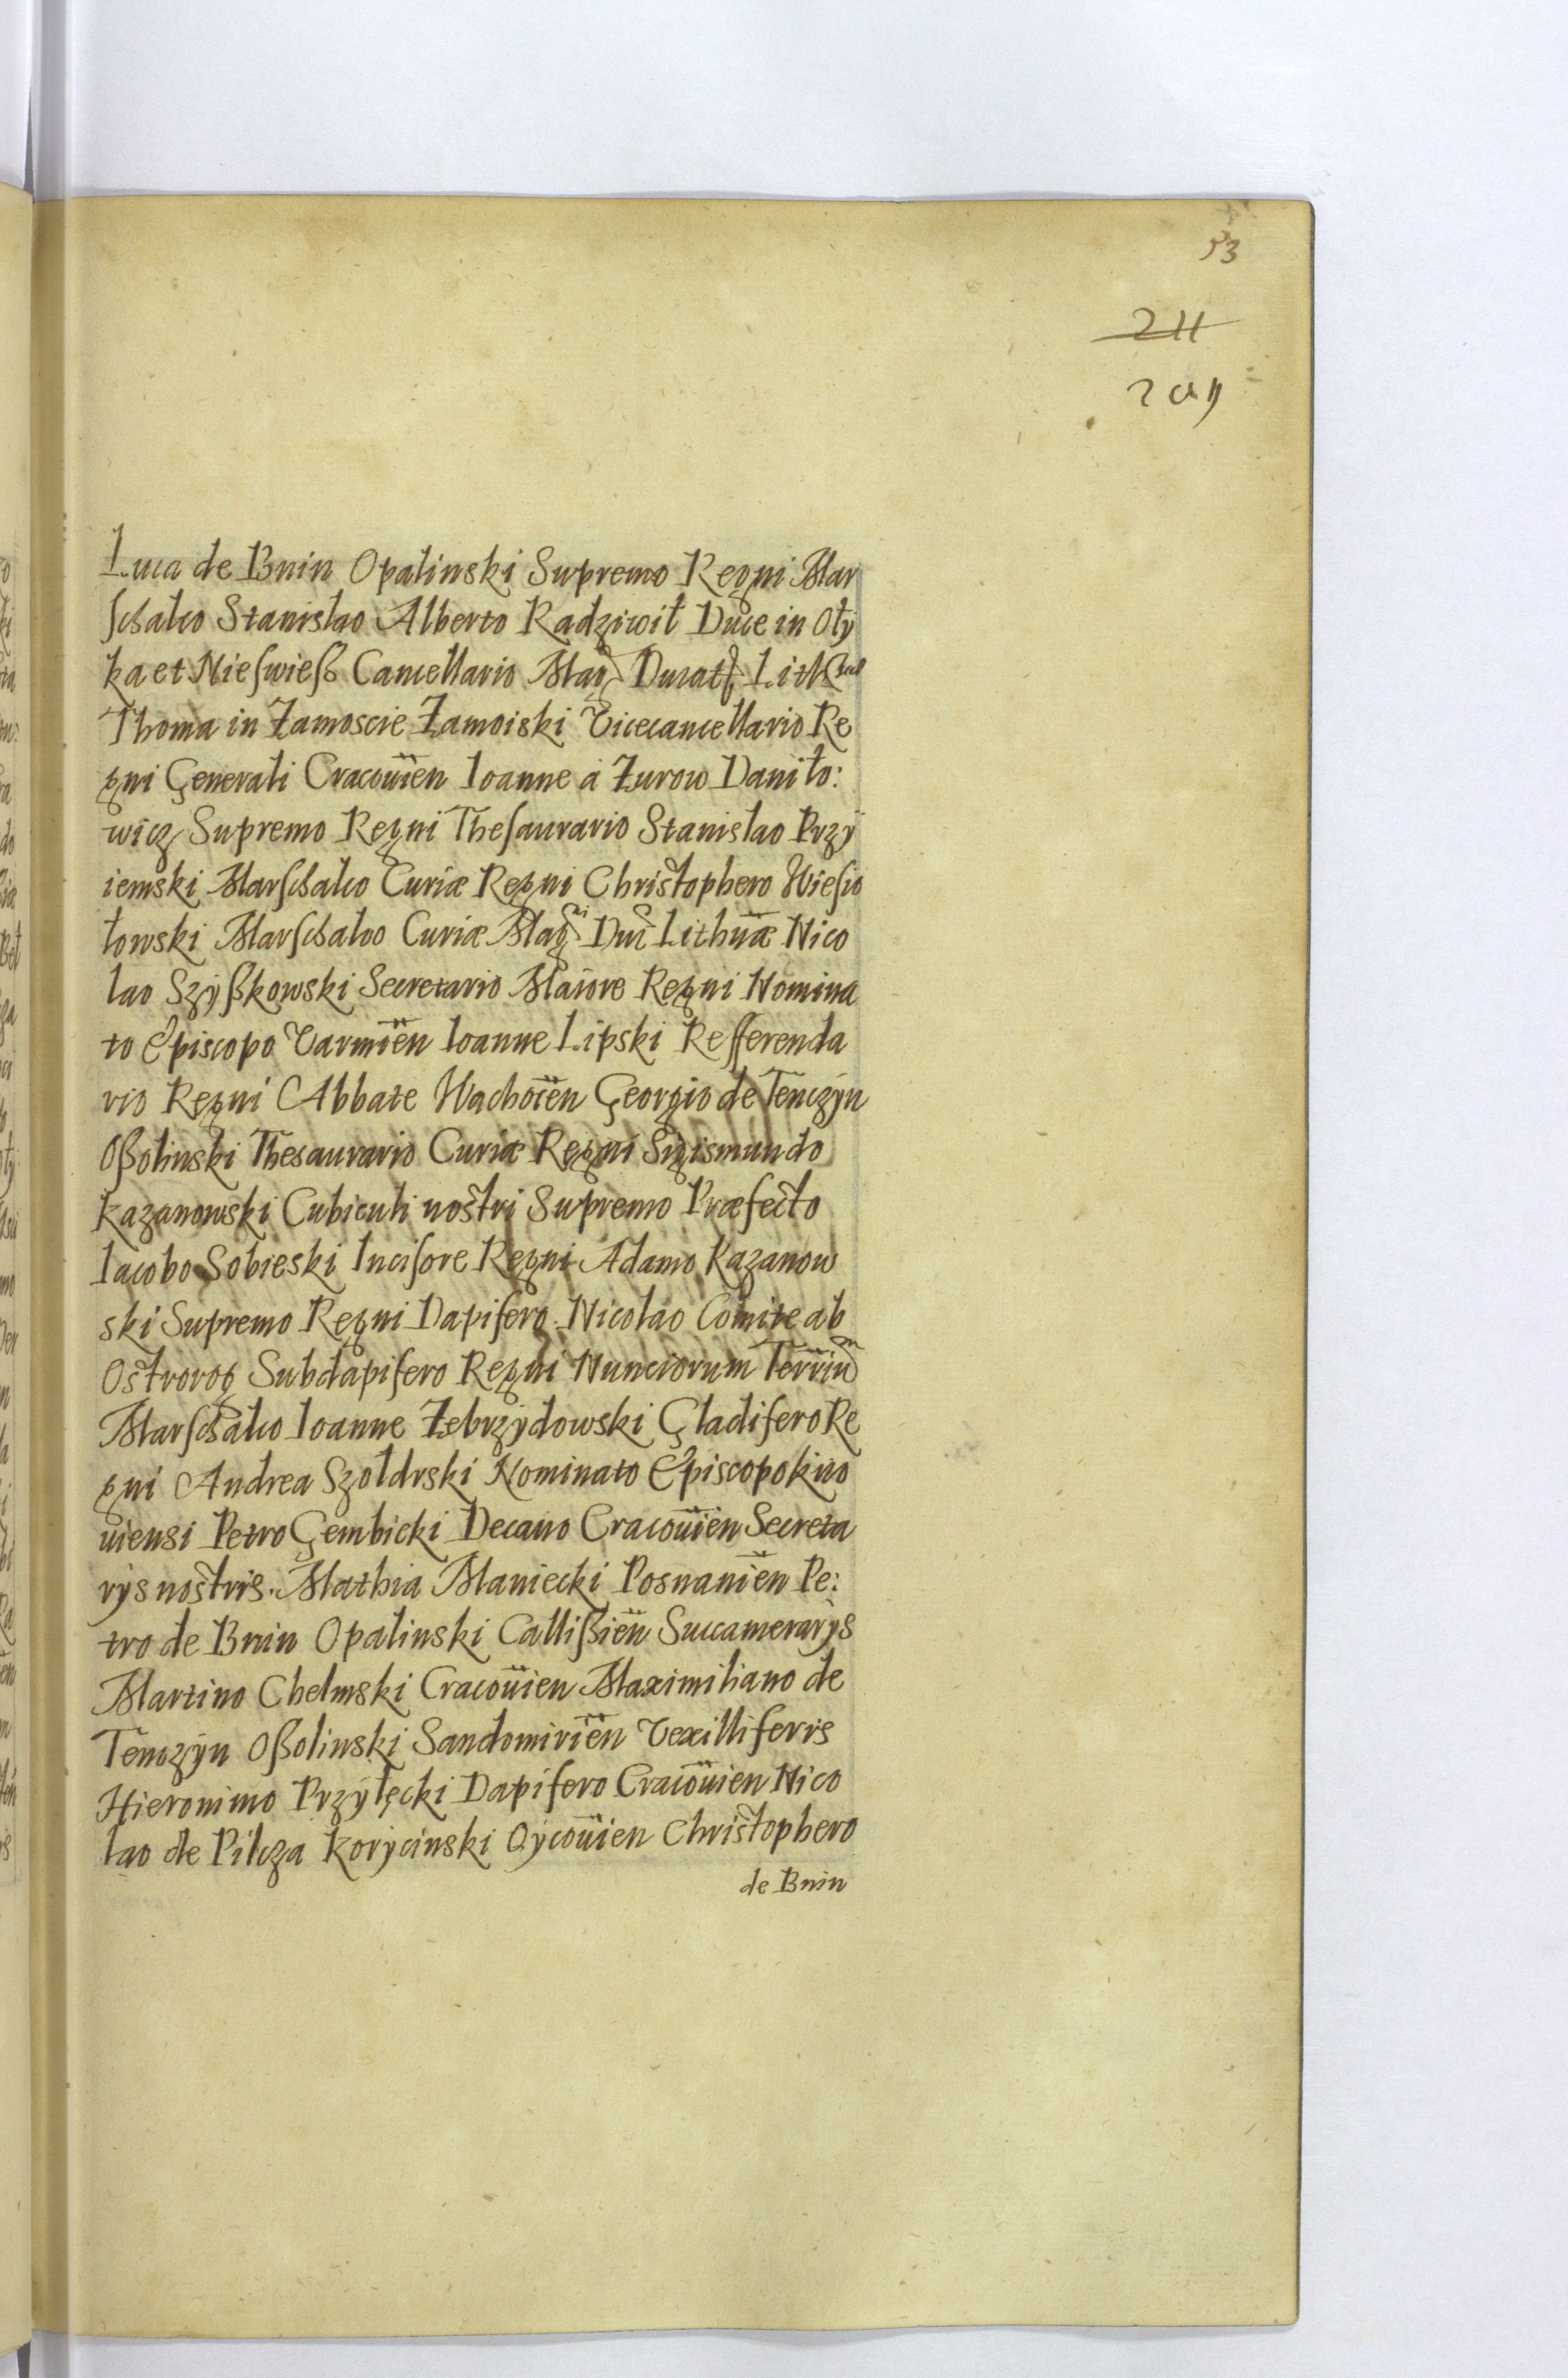 53
211
209
Luca de Bnin Opalinski Supremo Regni Mar
schalco Stanislao Alberto Radziwił Duce in Oły
ka et Nieswieß Cancellario Mag Ducat Lith
Thoma in Zamoscie Zamoiski Vicecancellario Re
gni Generali Cracouien Ioanne á Zurow Daniło:
wicz Supremo Regni Thesaurario Stanislao Przy
iemski Marschalco Curiæ Regni Christophero Wiesio
łowski Marschalco Curiæ Magni Duc Lithuæ Nico
lao Szÿßkowski Secretario Maiore Regni Nomina
to Episcopo Varmien Ioanne Lipski Refferenda
rio Regni Abbate Wachocen Georgio de Tenczÿn
Oßolinski Thesaurario Curiæ Regni Sigismundo
Kazanowski Cubiculi nostri Supremo Præfecto
Iacobo Sobieski Incisore Regni Adamo Kazanow
ski Supremo Regni Dapifero Nicolao Comite ab
Ostrorog Subdapifero Regni Nunciorum Terriu
Marschalco Ioanne Zebrzydowski Gladifero Re
gni Andrea Szoldrski Nominato Episcopo Kiio
uiensi Petro Gembicki Decano Cracouien Secreta
rÿs nostris. Mathia Maniecki Posnanien Pe:
tro de Bnin Opalinski Callißien Succamerarÿs
Martino Chelmski Cracouien Maximiliano de
Tenczÿn Oßolinski Sandomirien Vexilliferis
Hieronimo Przyłęcki Dapifero Cracouien Nico
lao de Pilcza Korÿcinski Oÿcouien Christophero
de Bnin